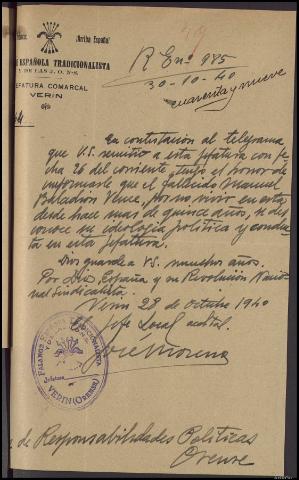 ¡Arriba España!
49
R En nº 985
30-10-40
cuarenta y nueve
ESPAÑOLA TRADICIONALISTA
Y DE LAS J. O. N-S.
JEFATURA COMARCAL
VERIN
En contestación al telegrama
que V.S. remitió a esta Jefatura con fe
cha 26 del corriente, tengo el honor de
informarle que el fallecido Manuel
Baladrón Vence, por no vivir en esta
desde hace mas de quince años, se des
conoce su ideología política y conduc
ta en esta Jefatura.
Dios guarde a VS. muchos años.
Por Dios España y su Revolución Nacio
nal sindicalista.
Verin 28 de Octubre 1940
El Jefe Local acctal.
José Moreno
FALANGE ESPAÑOLA TRADICIONALISTA
Jefatura
VERIN (ORENSE)
de Responsabilidades Politicas
Orense